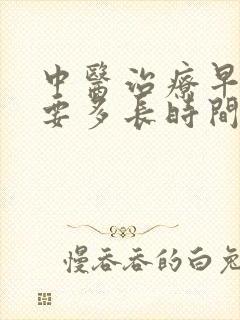 中醫治療早
要多長時間
慢吞吞的白兔